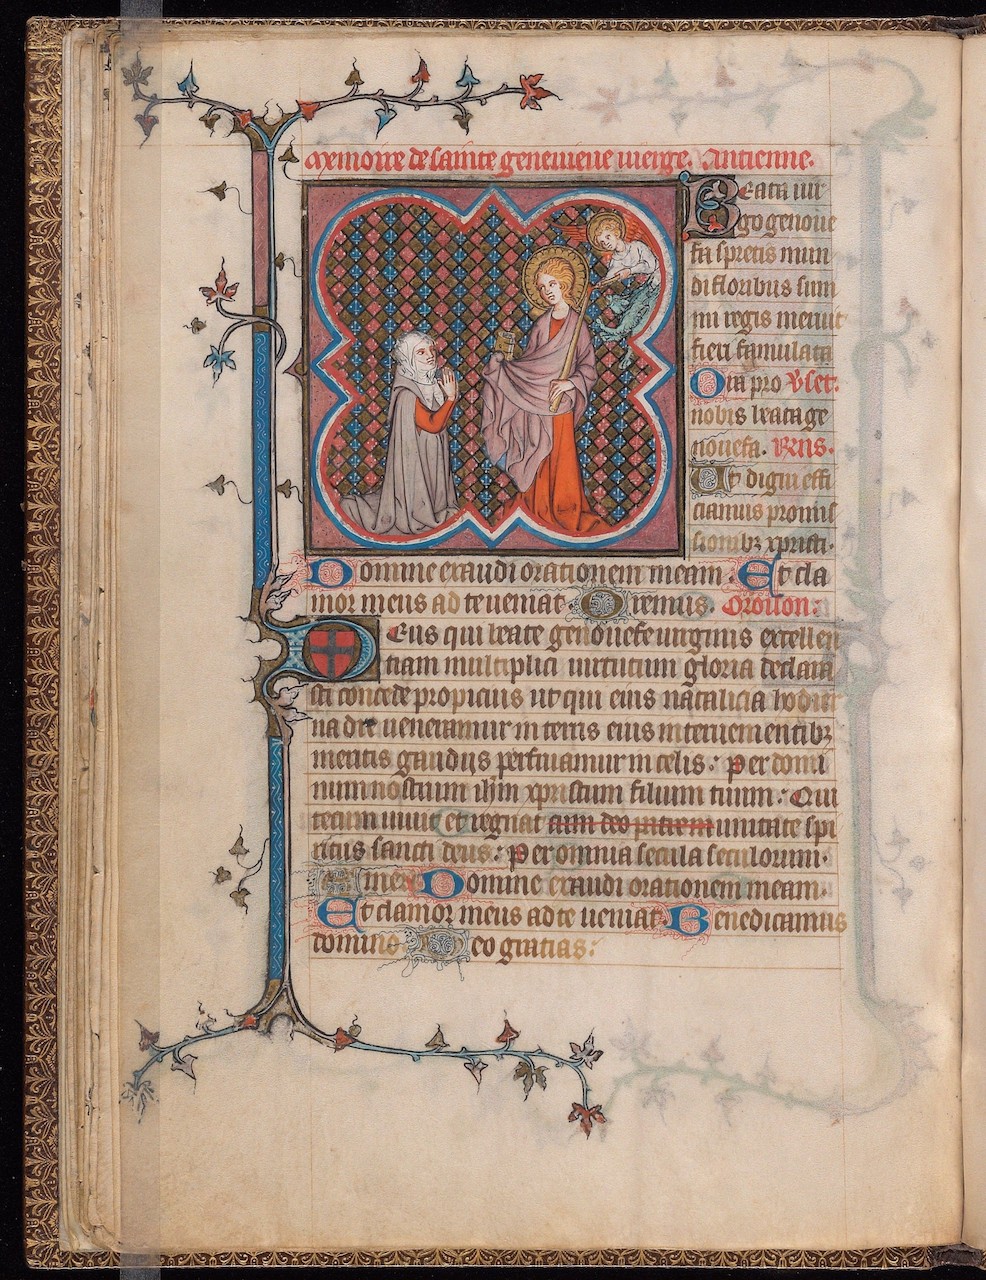 Memoire de sainte geneuieue uierge. Antienne.
Beata uir
go genoue
fa spretis mun
di floribus sum
mi regis meruit
fieri famulata
Ora pro Vset.
nobis beata ge
nouefa. Rns.
Ut digni effi
ciamur promis
sionibz xpristi.
Domine exaudi orationem meam. Et cla
mor meus ad te ueniat. Oremus. Oroison:
Deus qui beate genouefe uirginis excellen
tiam multiplici uirtutum gloria declara
sti concede propicius ut qui eius natalicia hodier
na die ueneramur in terris eius interuenientibz
meritis gaudijs perfruamur in celis: per domi
num nostrum ihm xpristum filium tuum: Qui
tecum uiuit et regnat cum deo patrem unitate spi
ritus sancti deus: per omnia secula seculorum.
Amen Domine exaudi orationem meam.
Et clamor meus ad te ueniat. Benedicamus
domino Deo gratias: